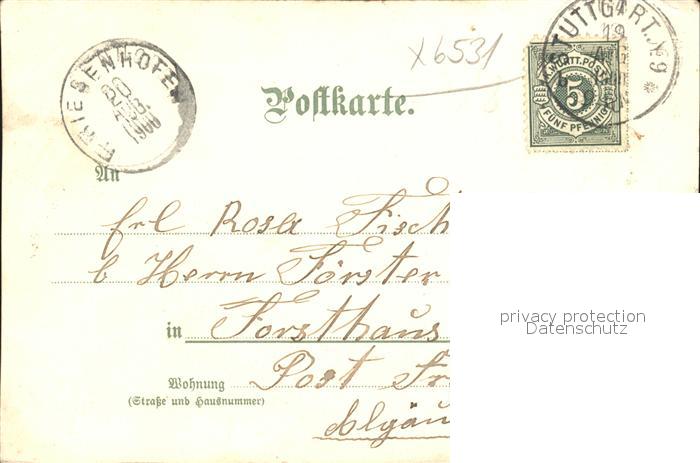 X6531
STUTTGART. № 9
19
K. WÜRTT. POST
5
FÜNF PFENNIG
FRIESENHOFEN
20
AUG.
1900
Postkarte.
An
Frl Rosa Fisch
b Herrn Förster
in Forsthaus
Wohnung Post Fr
(Straße und Hausnummer)
Algäu
privacy protection
Datenschutz